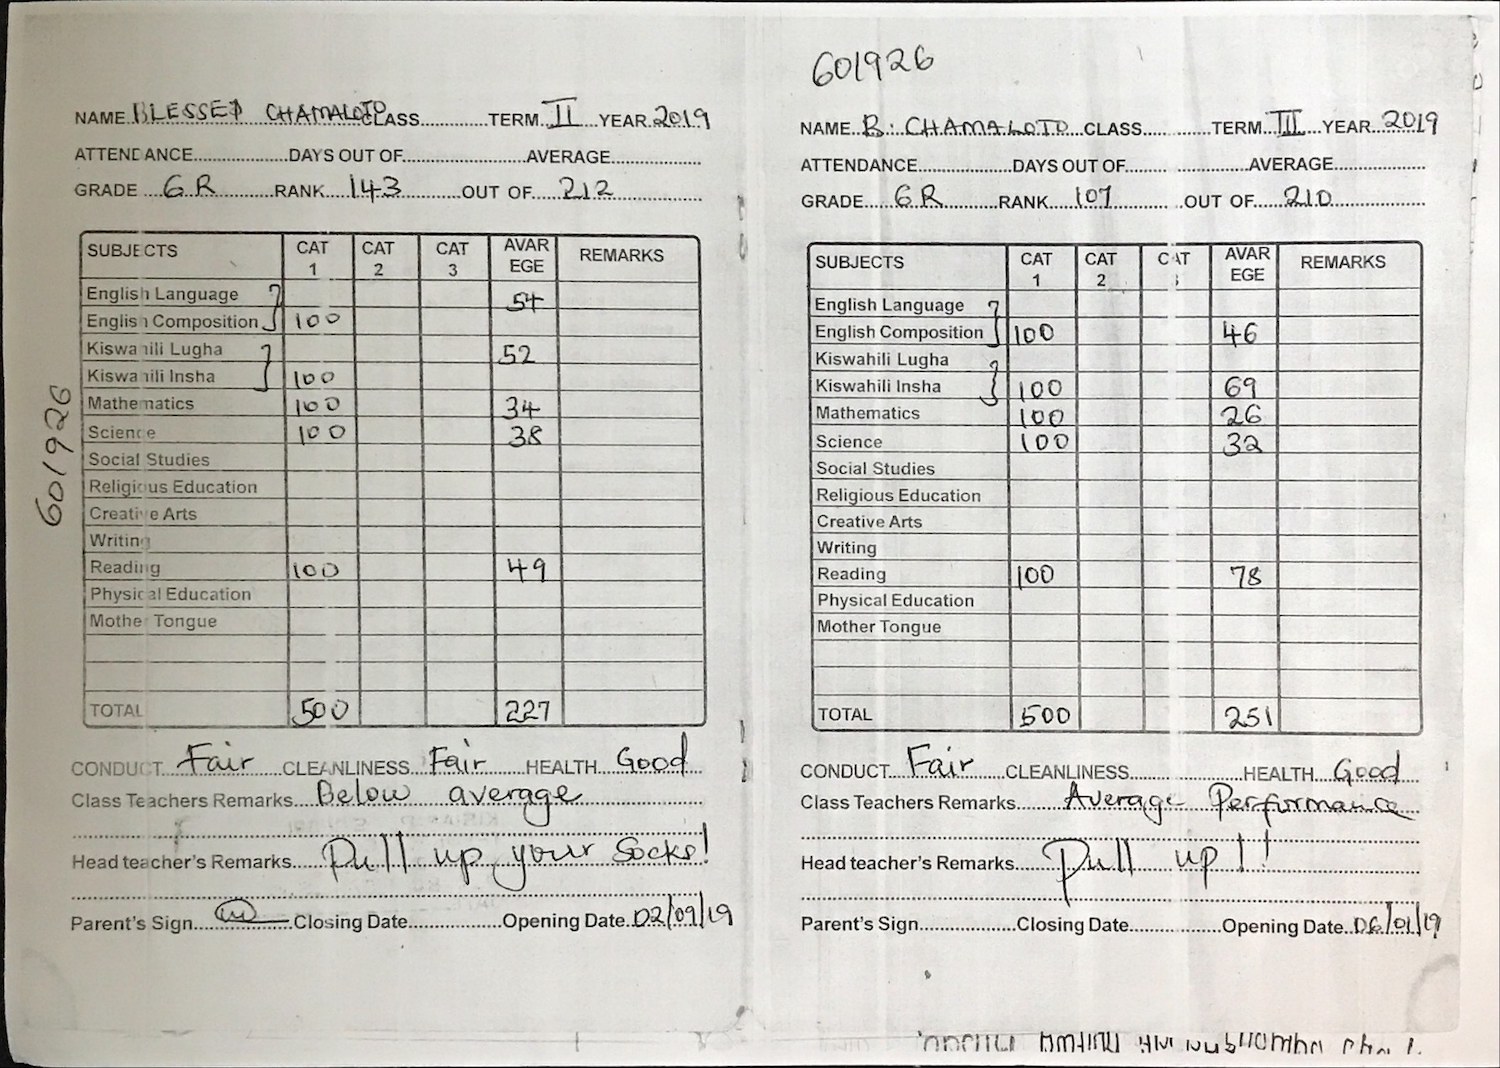 NAME BLESSED CHAMALOTO CLASS TERM II YEAR 2019
ATTENDANCE DAYS OUT OF AVERAGE
GRADE 6R RANK 143 OUT OF 212
SUBJECTS CAT 1 CAT 2 CAT 3 AVAR EGE REMARKS
English Language 54
English Composition 100
Kiswahili Lugha 52
Kiswahili Insha 100
Mathematics 100 34
Science 100 38
Social Studies
Religious Education
Creative Arts
Writing
Reading 100 49
Physical Education
Mother Tongue
TOTAL 500 227
CONDUCT Fair CLEANLINESS Fair HEALTH Good
Class Teachers Remarks Below average
Head teacher's Remarks Pull up your Socks!
Parent's Sign Closing Date Opening Date 02/09/19
601926
601926
NAME B. CHAMALOTO CLASS TERM III YEAR 2019
ATTENDANCE DAYS OUT OF AVERAGE
GRADE 6R RANK 107 OUT OF 210
SUBJECTS CAT 1 CAT 2 CAT AVAR EGE REMARKS
English Language
English Composition 100 46
Kiswahili Lugha
Kiswahili Insha 100 69
Mathematics 100 26
Science 100 32
Social Studies
Religious Education
Creative Arts
Writing
Reading 100 78
Physical Education
Mother Tongue
TOTAL 500 251
CONDUCT Fair CLEANLINESS HEALTH Good
Class Teachers Remarks Average Performance
Head teacher's Remarks Pull up!!
Parent's Sign Closing Date Opening Date 06/01/19